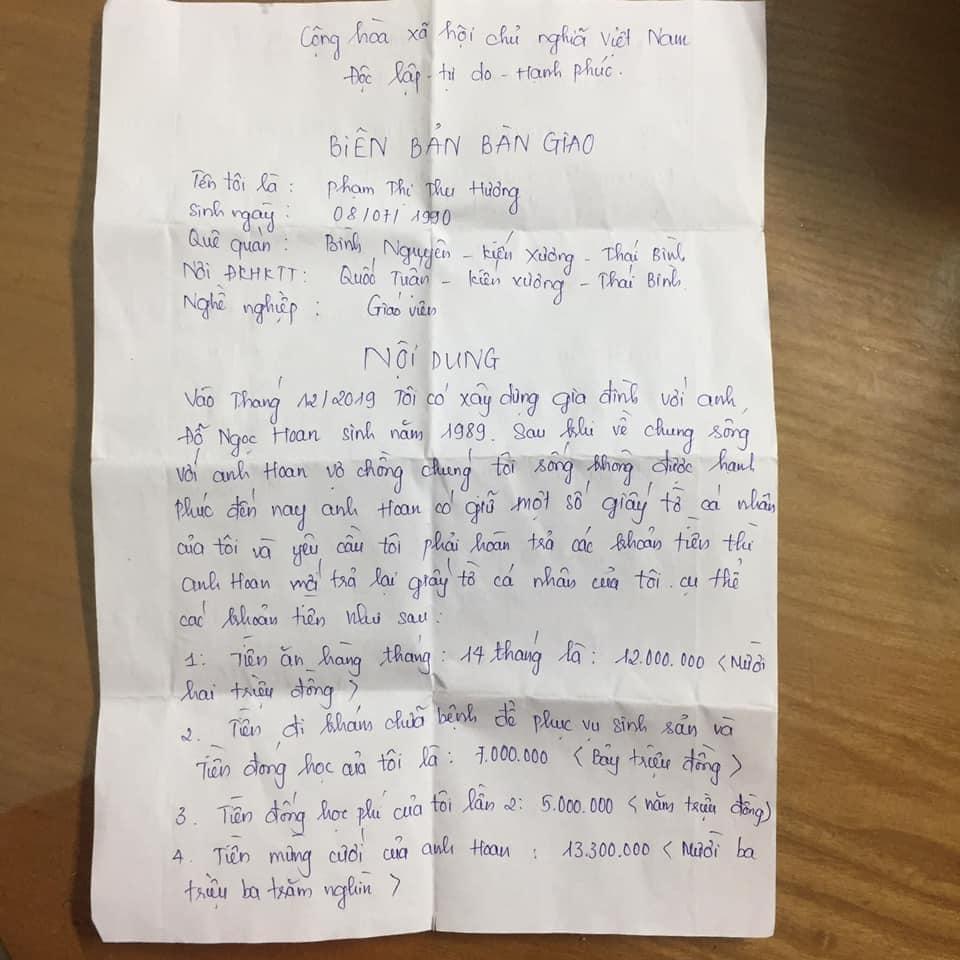 Cộng hòa xã hội chủ nghĩa Việt Nam
Độc lập - tự do - Hạnh phúc.
BIÊN BẢN BÀN GIAO
Tên tôi là : Phạm Thị Thu Hương
Sinh ngày : 08/07/1990
Quê quán : Bình Nguyên - Kiến Xương - Thái Bình
Nơi ĐKHKTT: Quốc Tuấn - Kiến Xương - Thái Bình.
Nghề nghiệp : Giáo viên
NỘI DUNG
Vào Tháng 12/2019 Tôi có xây dựng gia đình với anh
Đỗ Ngọc Hoan sinh năm 1989. Sau khi về chung sống
với anh Hoan vợ chồng chúng tôi sống không được hạnh
phúc đến nay anh Hoan có giữ một số giấy tờ cá nhân
của tôi và yêu cầu tôi phải hoàn trả các khoản tiền thì
anh Hoan mới trả lại giấy tờ cá nhân của tôi. cụ thể
các khoản tiền như sau :
1: Tiền ăn hàng tháng : 14 tháng là : 12.000.000 < Mười
hai triệu đồng >
2. Tiền đi khám chữa bệnh để phục vụ sinh sản và
Tiền đóng học của tôi là : 7.000.000 < Bảy triệu đồng >
3. Tiền đóng học phí của tôi lần 2: 5.000.000 < năm triệu đồng)
4. Tiền mừng cưới của anh Hoan : 13.300.000 < Mười ba
triệu ba trăm nghìn >